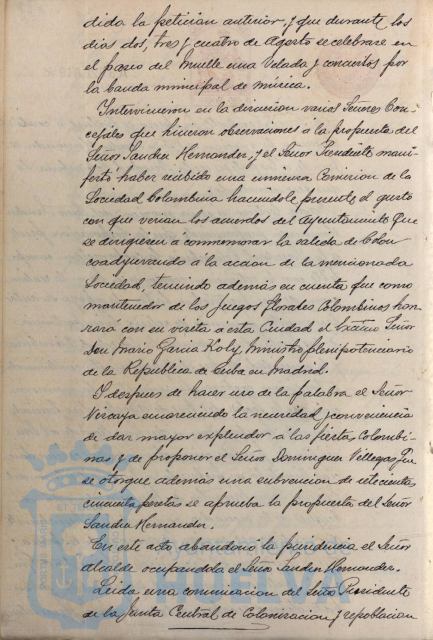 dida la peticion anterior, y que durante los
dias dos, tres y cuatro de Agosto se celebrase en
el paseo del Muelle una Velada y conciertos por
la banda municipal de música.
Intervinieron en la discusion varios Señores Con-
cejales que hicieron observaciones á la propuesta del
Señor Sanchez Hernandez, y el Señor Presidente mani-
festó haber recibido una numerosa Comision de la
Sociedad Colombina haciendole presente el gusto
con que verian los acuerdos del Ayuntamiento que
se dirigiesen á conmemorar la salida de Colon
coadyuvando á la accion de la mencionada
Sociedad, teniendo además en cuenta que como
mantenedor de los Juegos florales Colombinos hon-
rará con su visita á esta Ciudad el Excmo Señor
Don Mario Garcia Koly, Ministro plenipotenciario
de la Republica de Cuba en Madrid.
Y despues de hacer uso de la palabra el Señor
Vizcaya encareciendo la necesidad y conveniencia
de dar mayor explendor á las fiestas Colombi-
nas y de proponer el Señor Dominguez Villegas que
se otorgue además una subvencion de setecientas
cincuenta pesetas se aprueba la propuesta del Señor
Sanchez Hernandez.
En este acto abandonó la presidencia el Señor
alcalde ocupandola el Señor Sanchez Hernandez.
Leida una comunicacion del Señor Presidente
de la Junta Central de Colonizacion y repoblacion
HUELVA